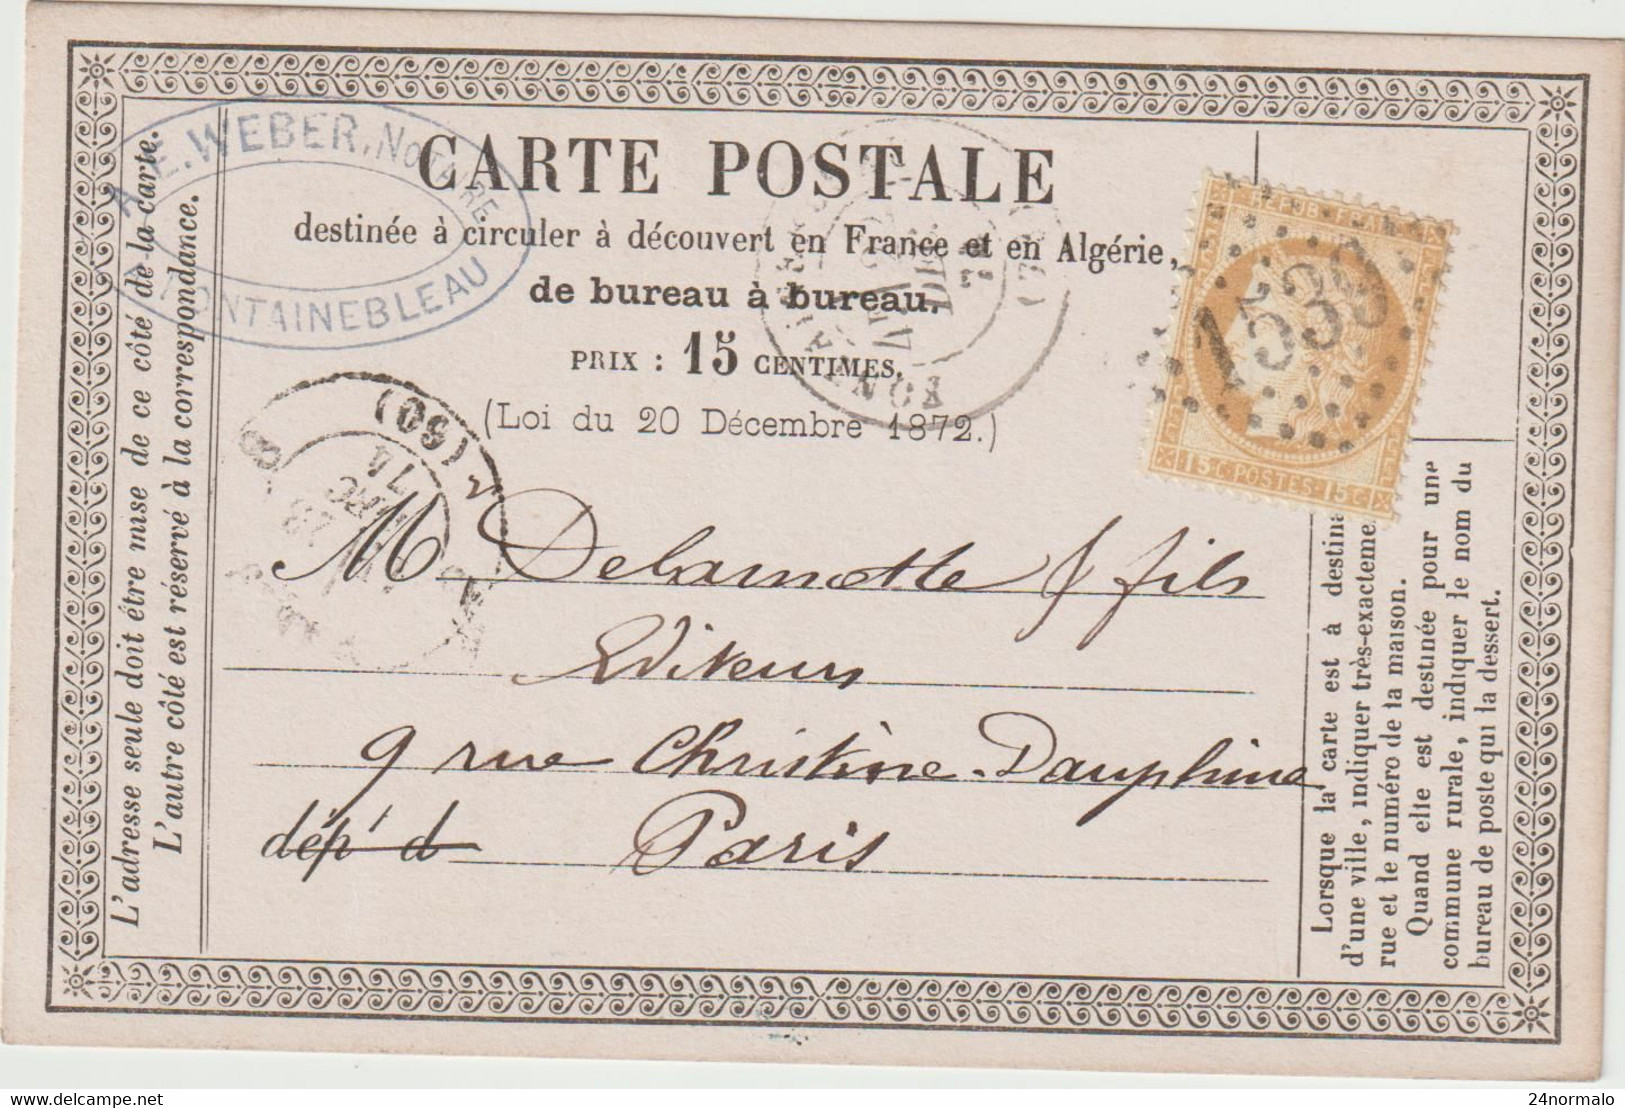 A. E. WEBER, NOTAIRE
FONTAINEBLEAU
CARTE POSTALE
destinée à circuler à découvert en France et en Algérie,
de bureau à bureau.
PRIX : 15 CENTIMES.
(Loi du 20 Décembre 1872.)
REPUB FRANC
1538
15 C POSTES 15 C
DEC
74
(60)
74
M Delamotte & fils
Editeurs
9 rue Christine-Dauphine
dép' d Paris
L'adresse seule doit être mise de ce côté de la carte.
L'autre côté est réservé à la correspondance.
Lorsque la carte est à destina
d'une ville, indiquer très-exacteme
rue et le numéro de la maison.
Quand elle est destinée pour une
commune rurale, indiquer le nom du
bureau de poste qui la dessert.
delcampe.net
24normalo